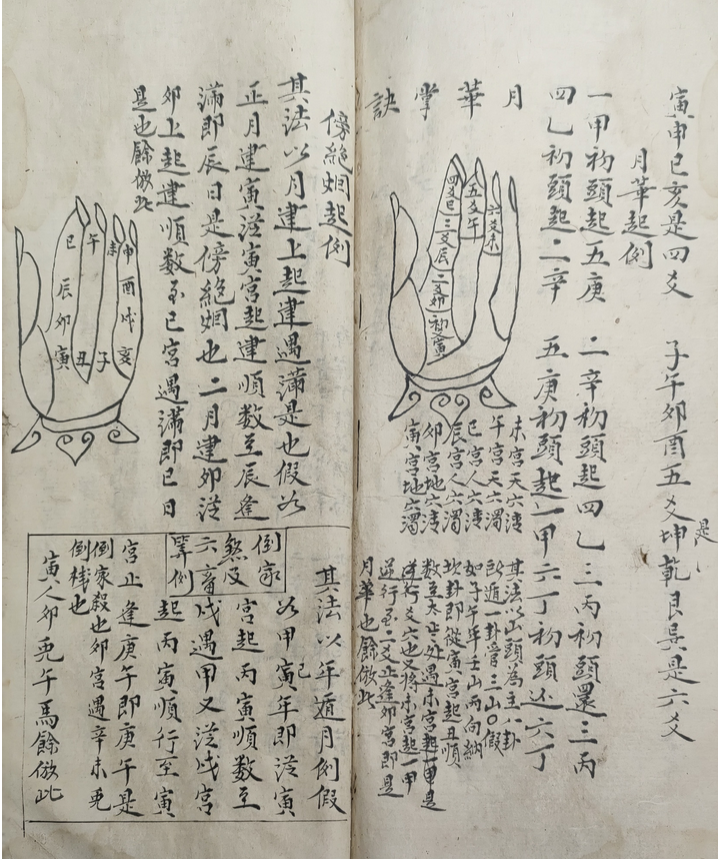 寅申巳亥是四爻 子午卯酉五爻坤乾艮巽是六爻
是
月華起例
一甲初頭起五庚 二辛初頭起四乙三丙初頭還三丙
四乙初頭起二辛 五庚初頭起一甲六丁初頭还六丁
月華掌訣
六爻未
五爻午
四爻巳
三爻辰
二爻卯
初寅
未宮天六清
午宮天六濁
巳宮人六清
辰宮人六濁
卯宮地六清
寅宮地六濁
其法以山頭為主八卦
例遁一卦管三山〇假
如子午年壬山丙向納
坎卦即從寅宮起丑順
數至太歲處遇未宮起一甲是
逆行爻六也又將未宮起一甲
逆行至二爻止逢卯宮即是
月華也餘倣此
傍絕烟起例
其法以月建上起建遇滿是也假如
正月建寅從寅宮起建順數至辰逢
滿即辰日是傍絕烟也二月建卯從
卯上起建順数至巳宮遇滿即巳日
是也餘倣此
申酉戌亥
未
午
巳
辰卯寅
丑子
倒家
煞及
六畜
掌例
其法以年遁月例假
如甲己寅年即從寅
宮起丙寅順數至
戌遇甲又從戌宮
起丙寅順行至寅
宮止逢庚午即庚午是
倒家殺也卯宮遇辛未兎
倒栈也
寅人卯兎午馬餘倣此